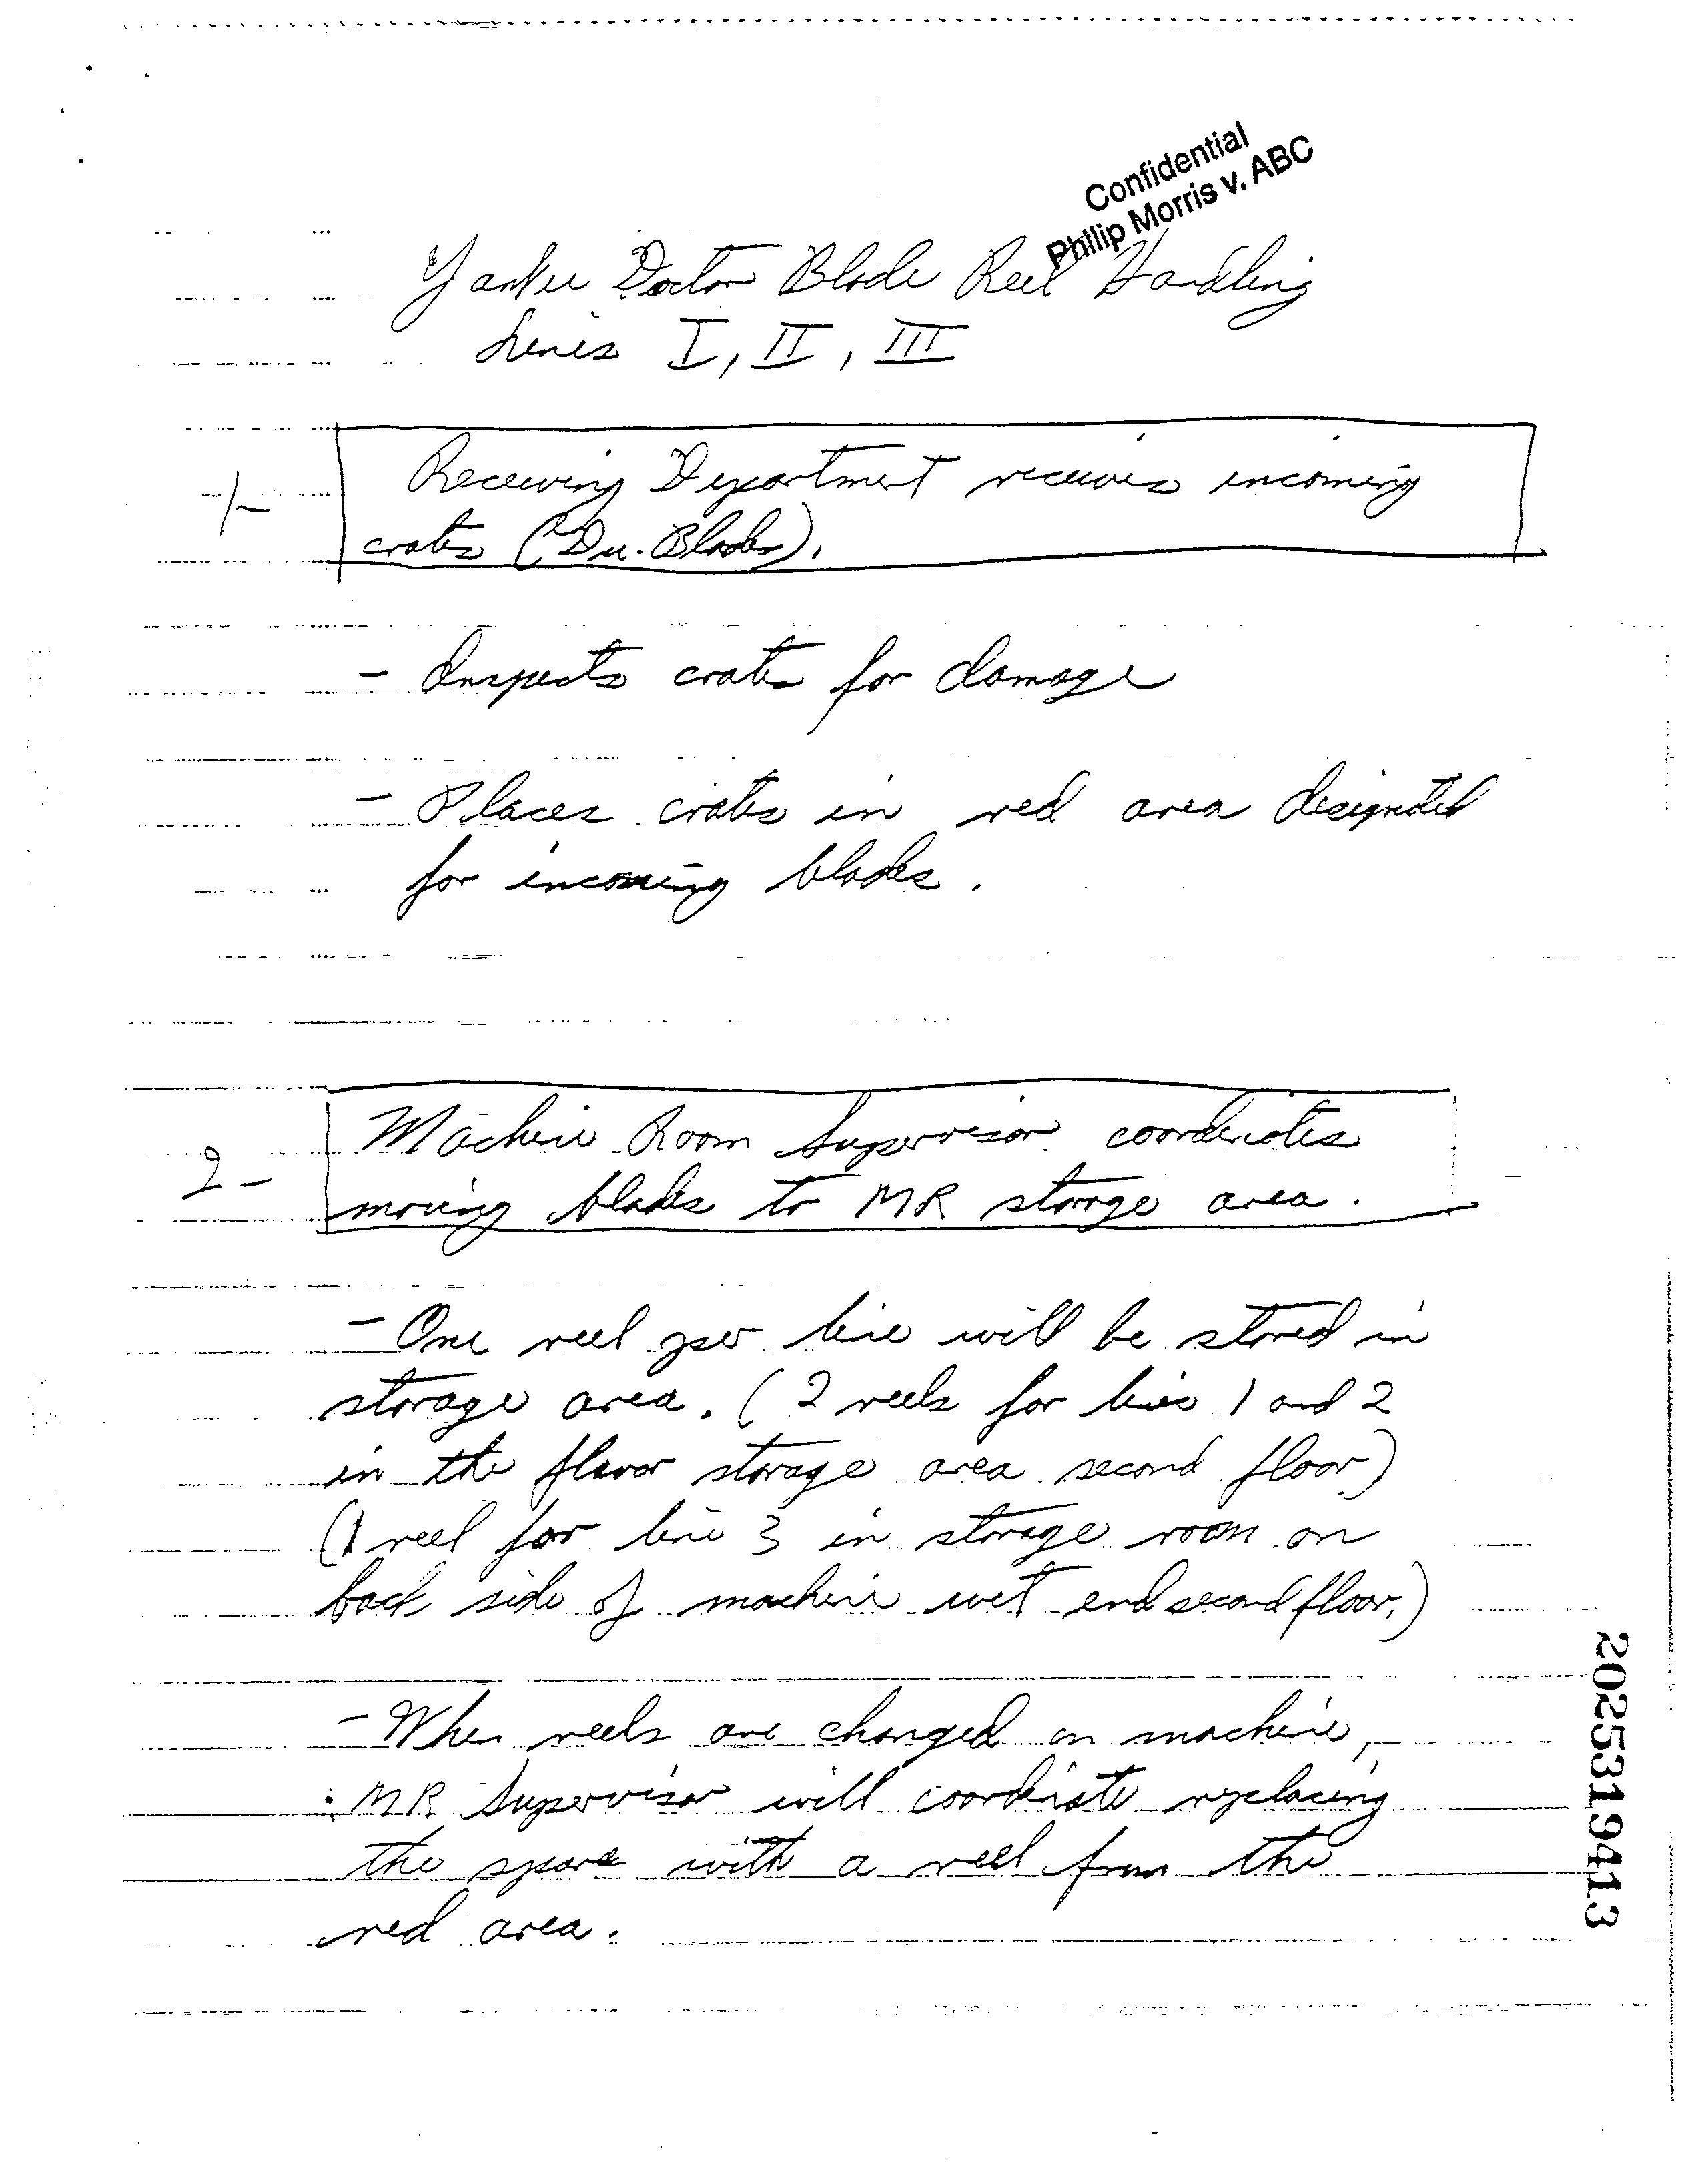 Confidential
Philip Morris v. ABC
Yankee Doctor Blade Reel Handling
Lines I, II, III
1- Receiving Department receives incoming
crates (Dr. Blades).
- Inspects crates for damage
- Places crates in red area designated
for incoming blades.
2- Machine Room Supervisor coordinates
moving blades to MR storage area.
- One reel per line will be stored in
storage area. (2 reels for lines 1 and 2
in the flavor storage area second floor)
(1 reel for line 3 in storage room on
back side of machine wet end second floor.)
- When reels are changed on machine,
MR Supervisor will coordinate replacing
the spare with a reel from the
red area.
2025319413